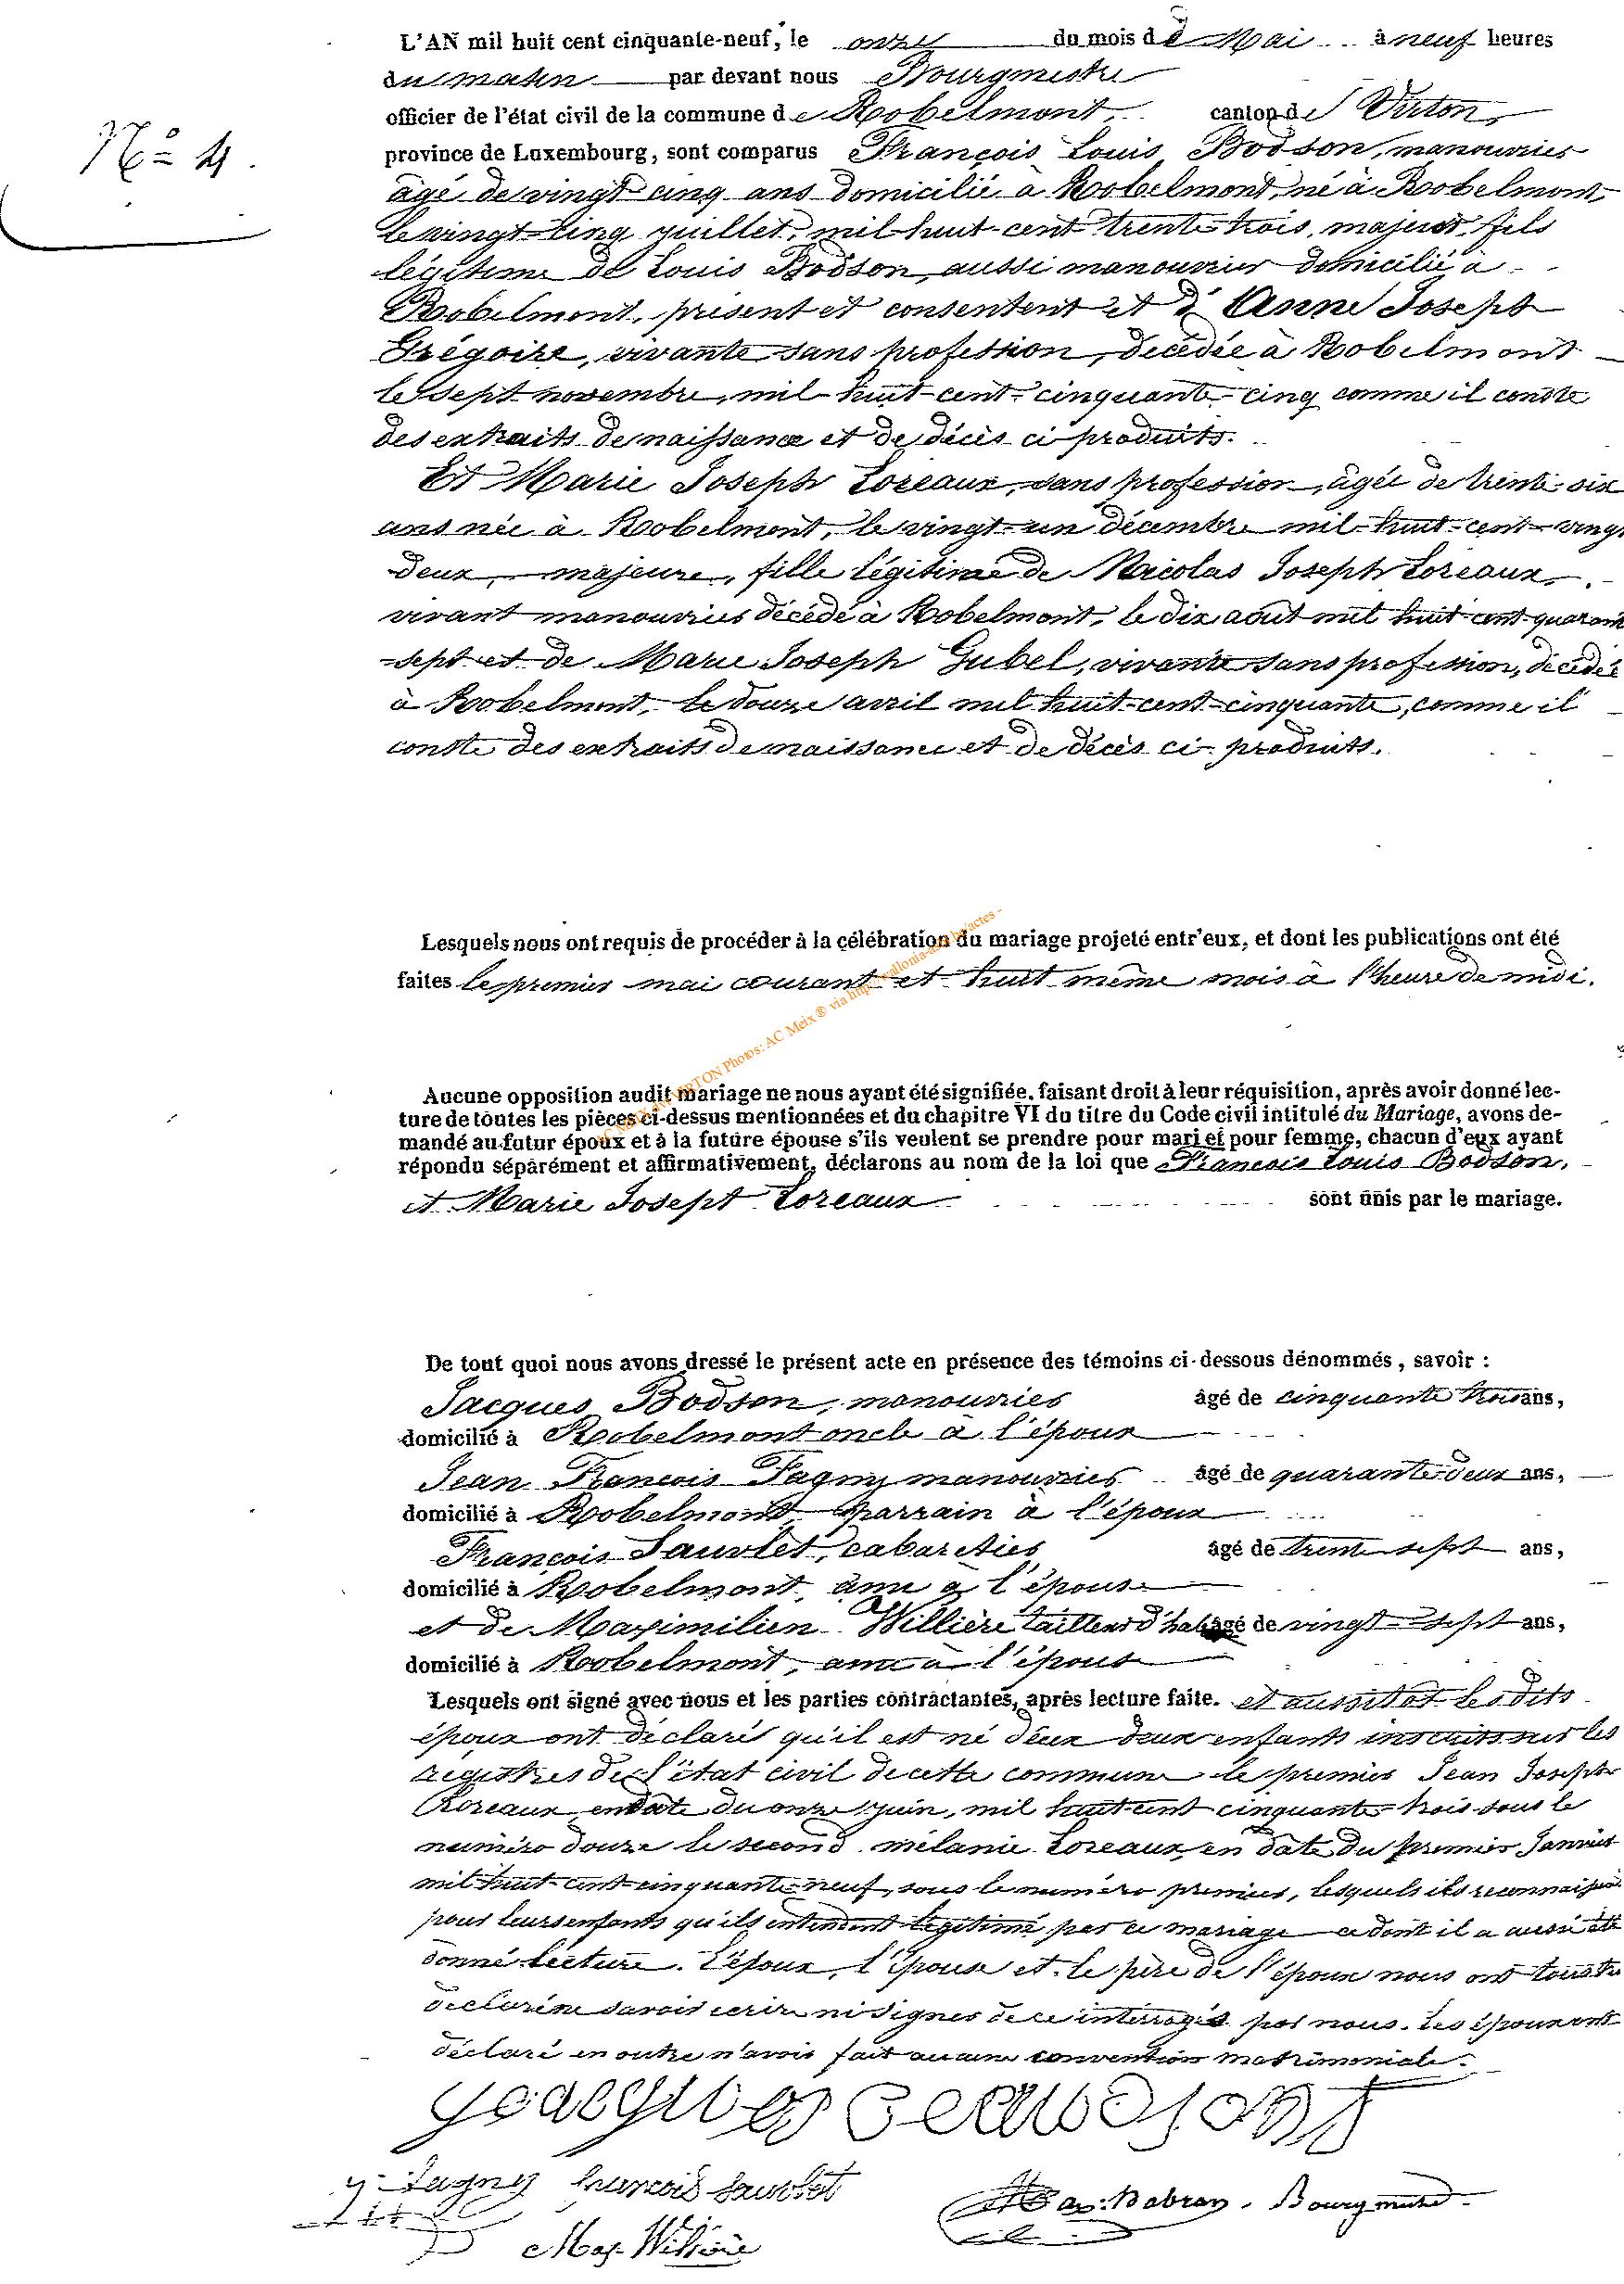 N° 4.
L'AN mil huit cent cinquante-neuf, le onze du mois de Mai à neuf heures
du matin par devant nous Bourgmestre
officier de l'état civil de la commune de Robelmont, canton de Virton,
province de Luxembourg, sont comparus François Louis Bodson, manouvrier
âgé de vingt cinq ans domicilié à Robelmont, né à Robelmont
le vingt-cinq juillet, mil-huit-cent-trente-trois, majeur, fils
légitime de Louis Bodson, aussi manouvrier domicilié à
Robelmont, présent et consentent et d'Anne Joseph
Grégoire, vivante sans profession, décédée à Robelmont
le sept novembre, mil-huit-cent-cinquante-cinq comme il conste
des extraits de naissance et de décès ci produits.
Et Marie Joseph Loreaux, sans profession, âgée de trente-six
ans née à Robelmont, le vingt-un décembre mil-huit-cent-vingt
deux, majeure, fille légitime de Nicolas Joseph Loreaux,
vivant manouvrier décédé à Robelmont, le dix août mil huit-cent-quarante
-sept et de Marie Joseph Gubel, vivante sans profession, décédée
à Robelmont, le douze avril mil huit-cent-cinquante, comme il
conste des extraits de naissance et de décès ci-produits.
Lesquels nous ont requis de procéder à la célébration du mariage projeté entr'eux, et dont les publications ont été
faites le premier mai courant et huit même mois à l'heure de midi.
Aucune opposition audit mariage ne nous ayant été signifiée, faisant droit à leur réquisition, après avoir donné lec-
ture de toutes les pièces ci-dessus mentionnées et du chapitre VI du titre du Code civil intitulé du Mariage, avons de-
mandé au futur époux et à la future épouse s'ils veulent se prendre pour mari et pour femme, chacun d'eux ayant
répondu séparément et affirmativement, déclarons au nom de la loi que François Louis Bodson,
et Marie Josept Loreaux sont unis par le mariage.
De tout quoi nous avons dressé le présent acte en présence des témoins ci-dessous dénommés, savoir :
Jacques Bodson, manouvrier âgé de cinquante trois ans,
domicilié à Robelmont oncle à l'époux
Jean François Fagny manouvrier âgé de quarante-deux ans,
domicilié à Robelmont parrain à l'époux
François Sauvlet, cabaretier âgé de trente sept ans,
domicilié à Robelmont, ami à l'épouse
et de Maximilien Willière tailleur d'hab âgé de vingt-sept ans,
domicilié à Robelmont, ami à l'épouse
Lesquels ont signé avec nous et les parties contractantes, après lecture faite. et aussitôt lesdits
époux ont déclaré qu'il est né d'eux deux enfants inscrits sur les
registres de l'état civil de cette commune le premier Jean Joseph
Loreaux en date du onze juin, mil huit cent cinquante-trois sous le
numéro douze le second mélanie Loreaux, en date du premier Janvier
mil huit-cent-cinquante-neuf, sous le numéro premier, lesquels ils reconnaissent
pour leurs enfants qu'ils entendent légitimé par ce mariage ce dont il a aussi été
donné lecture. L'époux, l'épouse et le père de l'époux nous ont tous trois
déclaré ne savoir écrire ni signer de ce interrogés par nous. Les époux ont
déclaré en outre n'avoir fait aucune convention matrimoniale.
Fagny François Sauvlet
Max. Willière
Max. Dabran, Bourgmestre